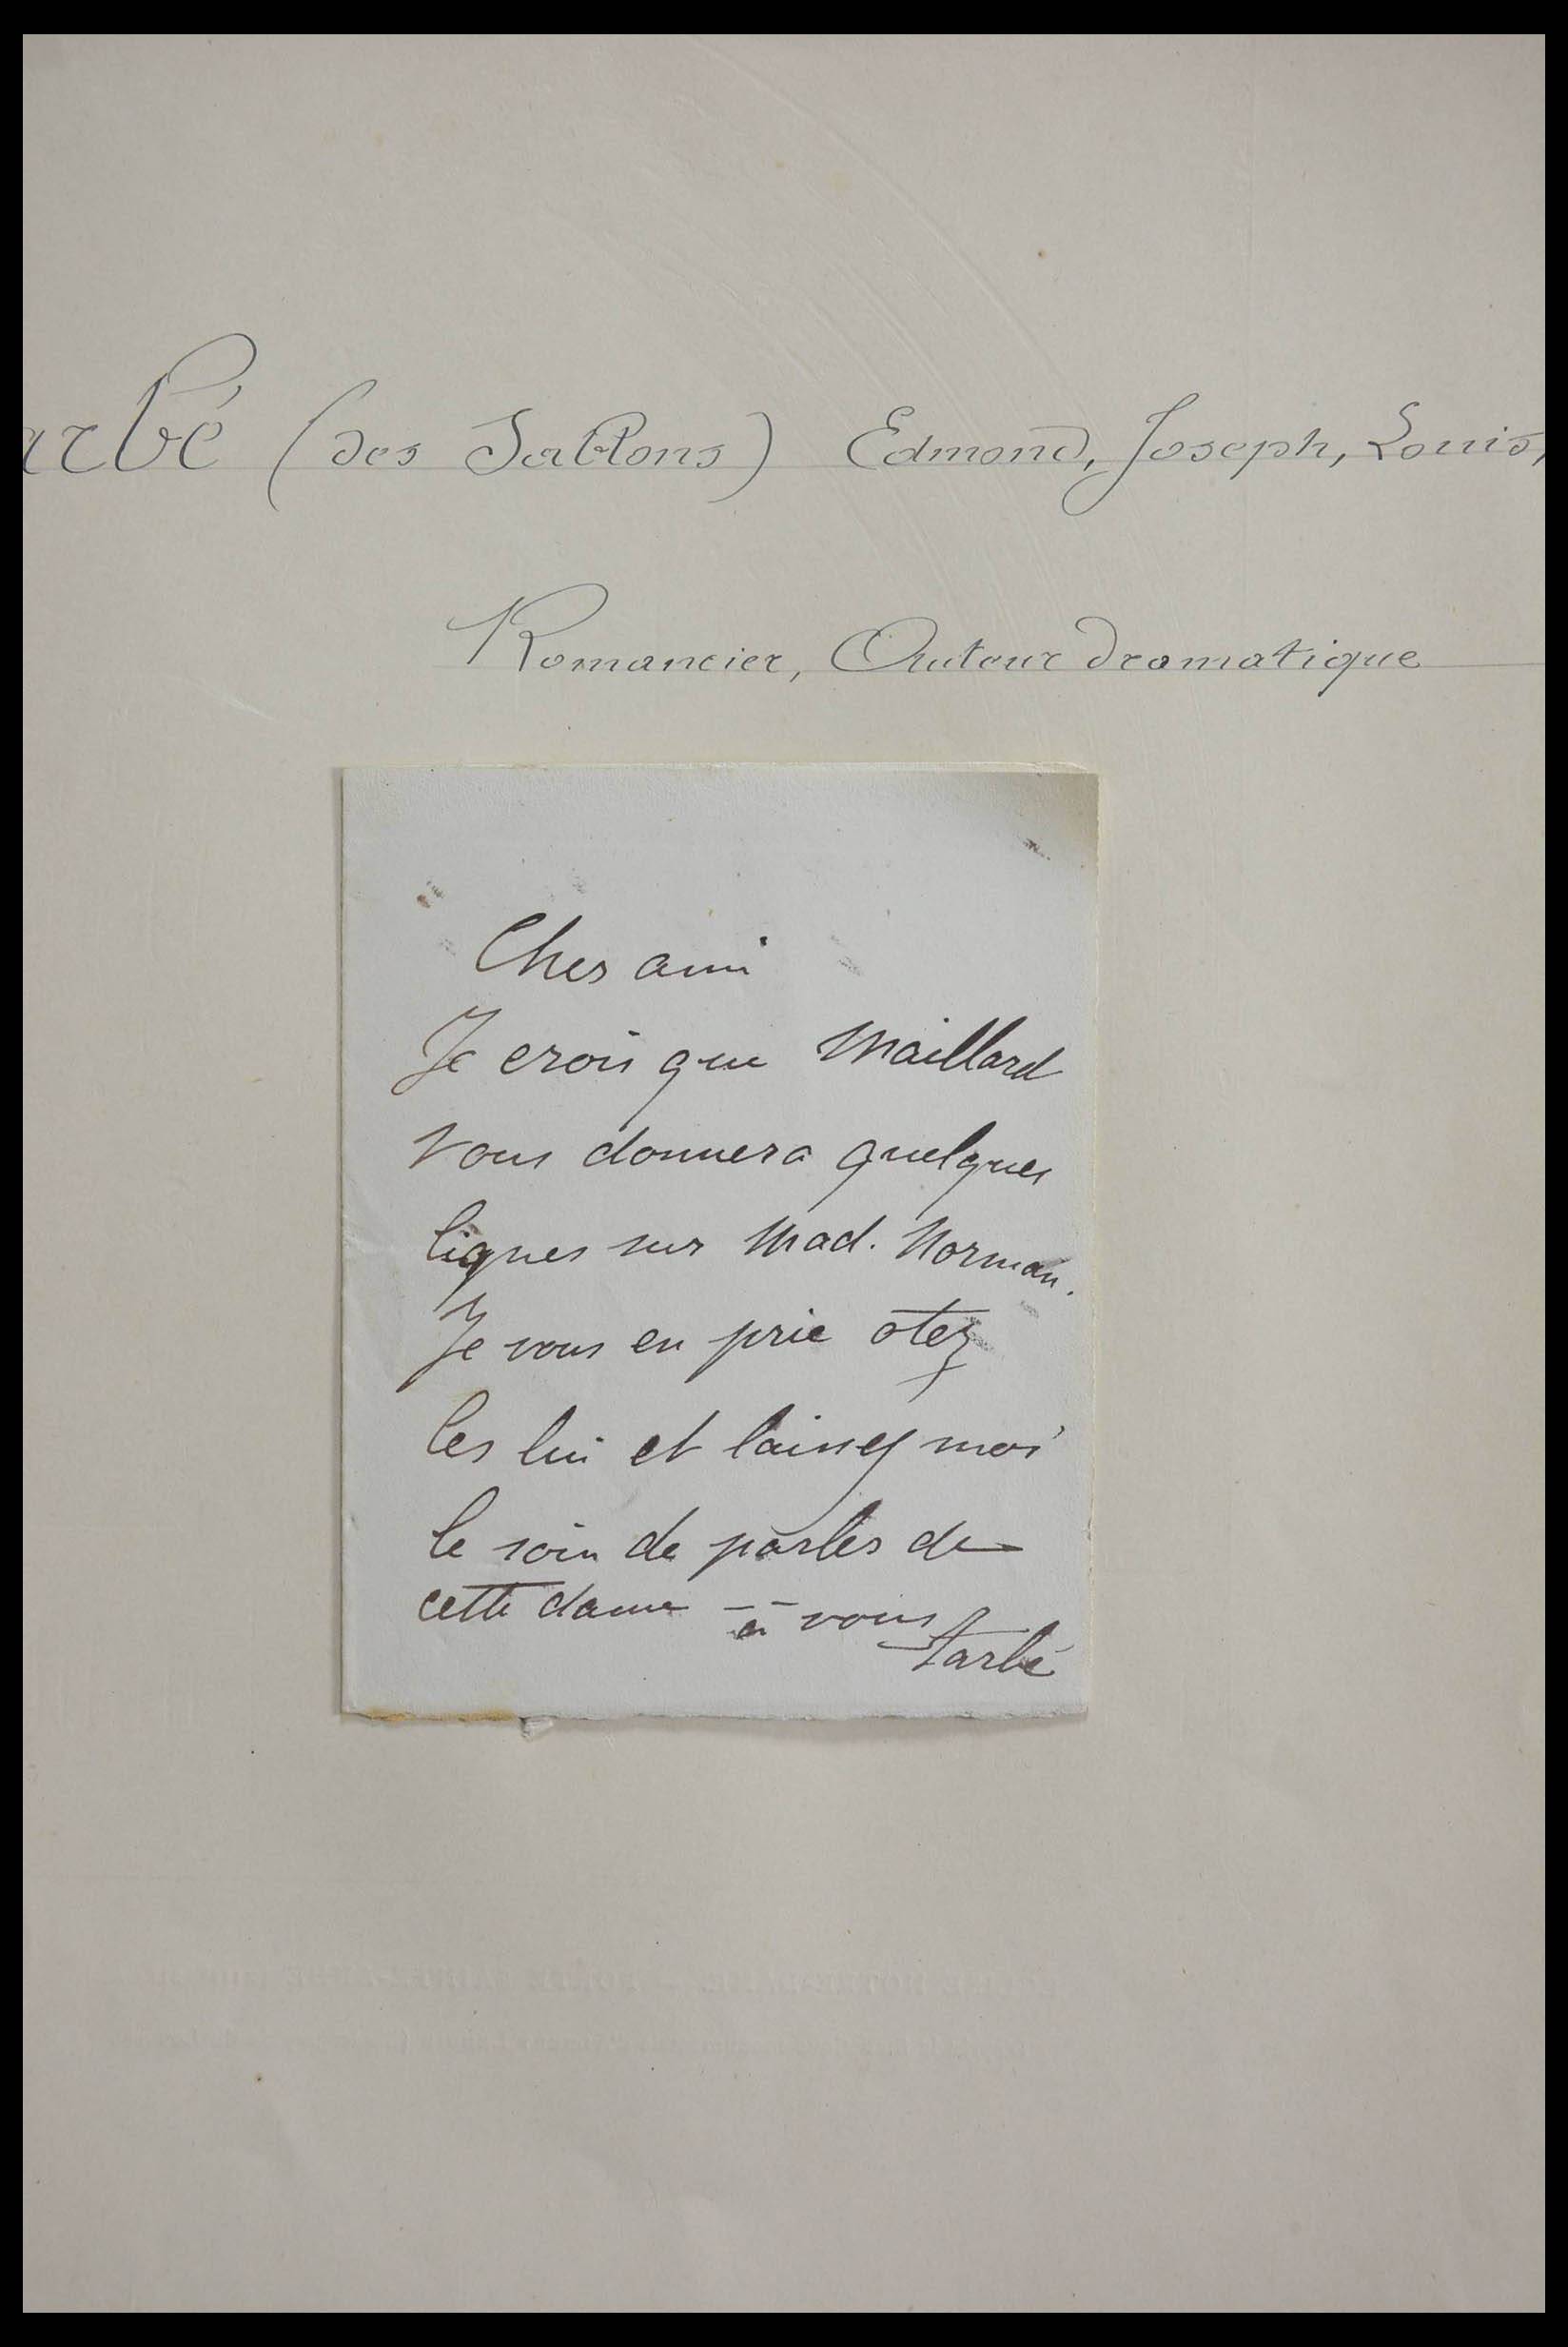 arbé (des Sablons) Edmond, Joseph, Louis,
Romancier, Auteur dramatique
Cher ami
Je crois que Maillard
vous donnera quelques
lignes sur Mad. Norman.
Je vous en prie otez
les lui et laissez moi
le soin de parler de
cette dame -- à vous
Tarbé